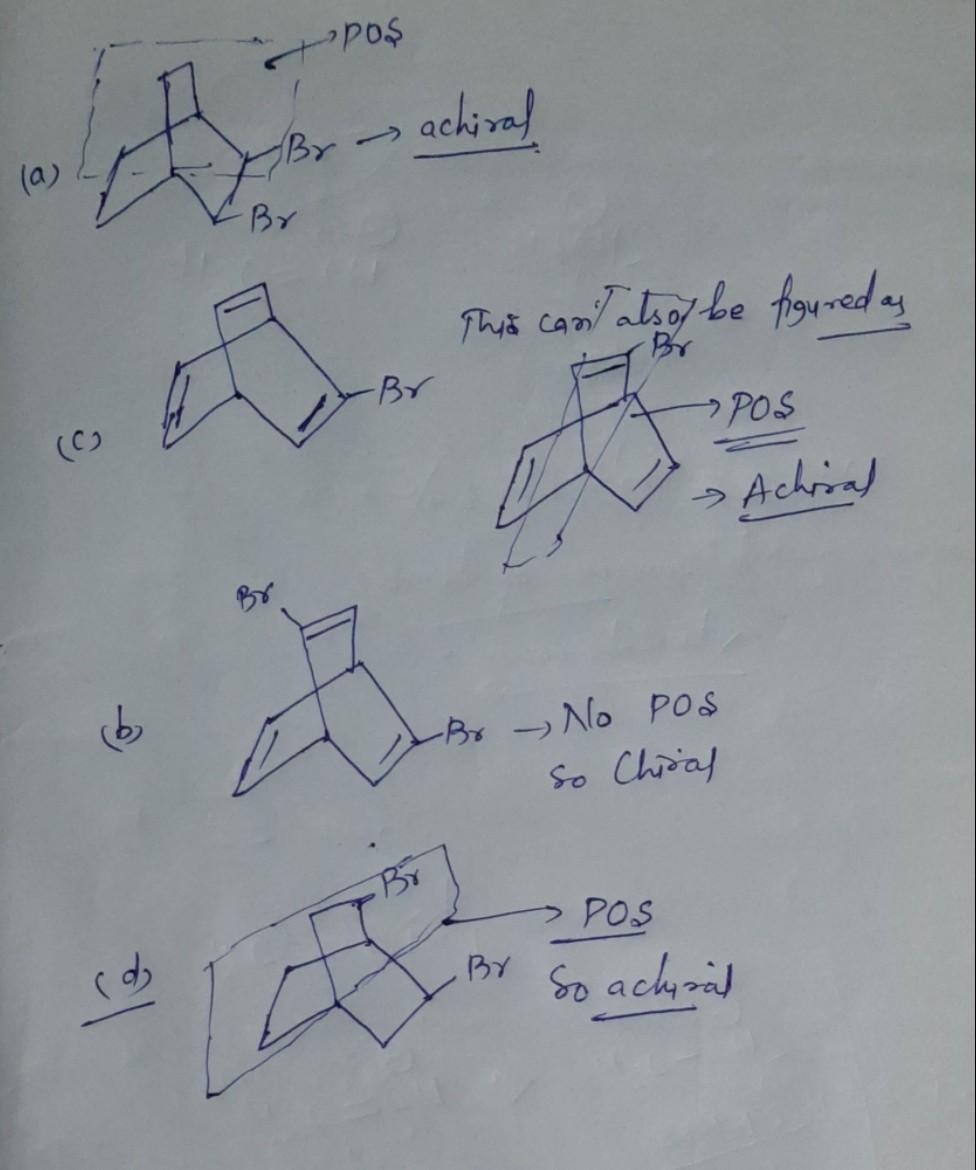 POS
(a)
Br → achiral
Br
This can also be figured as
Br
(c)
Br
→ POS
→ Achiral
Br
(b)
Br → No POS
So Chiral
Br
→ POS
(d)
Br
So achiral